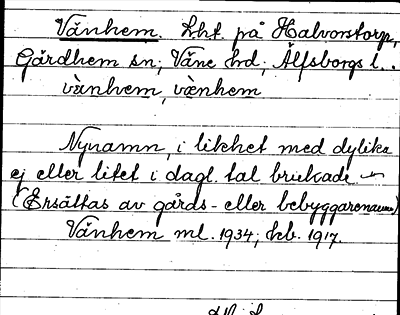 Vänhem. Lht på Halvorstorp,
Gärdhem sn; Väne hd; Älfsborgs l..
vànhem, vænhem
Nynamn, i likhet med dylika
ej eller litet i dagl. tal brukade
(Ersättas av gårds- eller bebyggarenamn)
Vänhem ml. 1934; kb. 1917.